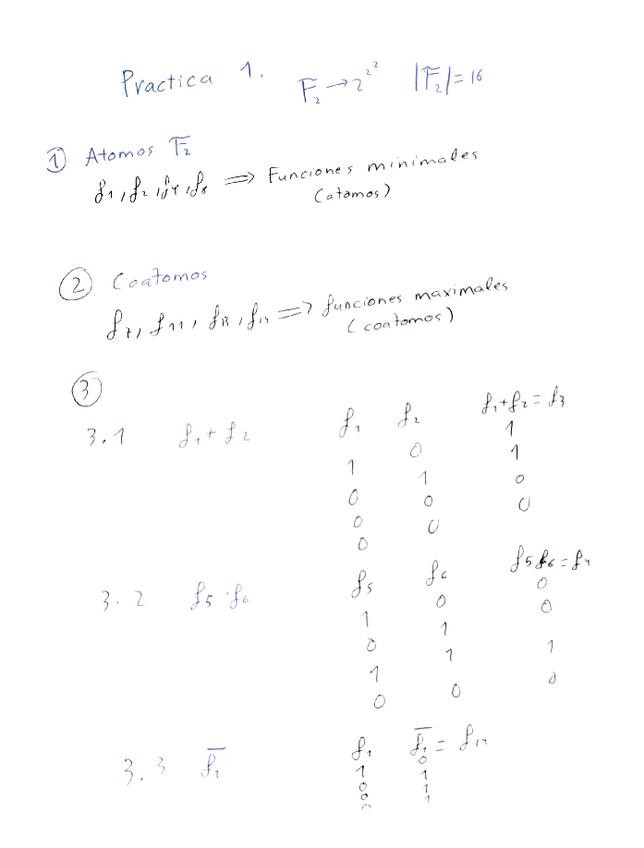 Practica 1. F₂ → 2^2^2 |F₂| = 16
① Atomos F₂
f₁, f₂, f₄, f₈ ⟹ Funciones minimales
(atomos)
② Coatomos
f₇, f₁₁, f₁₃, f₁₄ ⟹ funciones maximales
(coatomos)
③
3.1 f₁ + f₂ f₁ f₂ f₁+f₂ = f₃
1 0 1
0 1 1
0 0 0
0 0 0
3.2 f₅ · f₆ f₅ f₆ f₅f₆ = f₄
1 0 0
0 1 0
1 1 1
0 0 0
3.3 f̅₁ f₁ f̅₁ = f₁₄
1 0
0 1
0 1
0 1